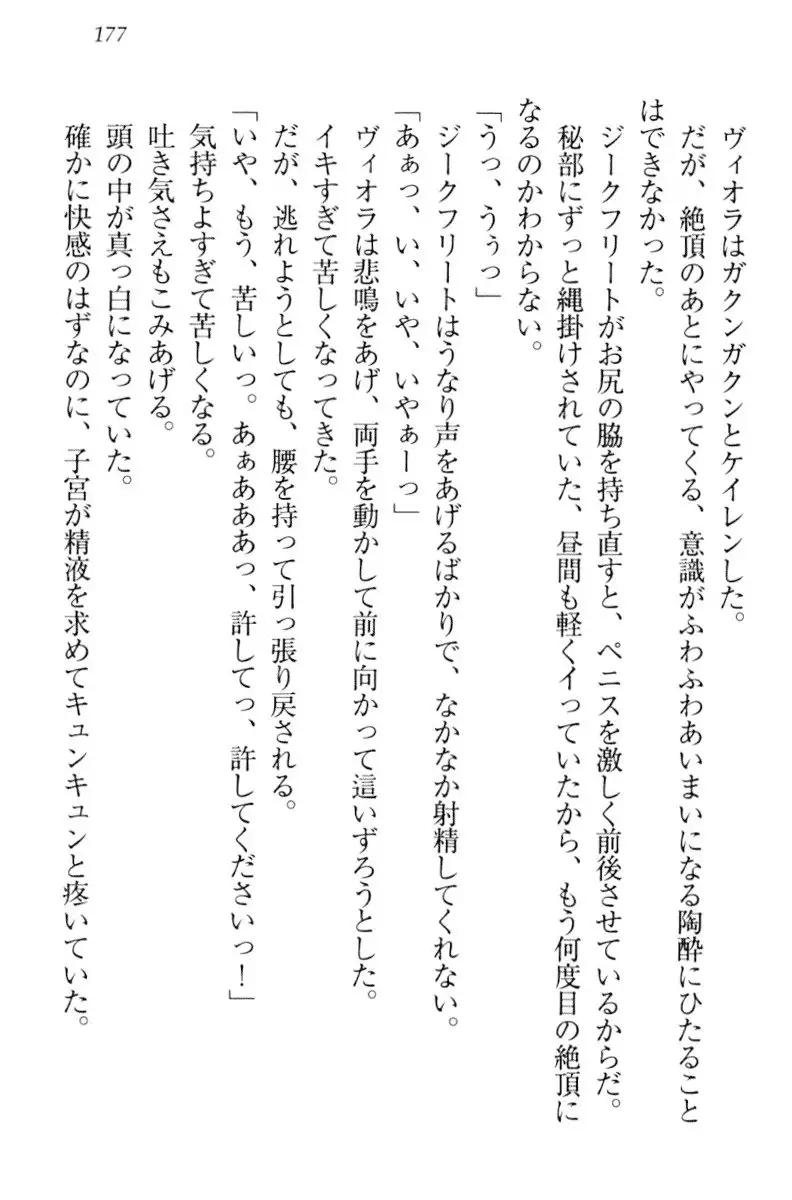 177
ヴィオラはガクンガクンとケイレンした。
だが、絶頂のあとにやってくる、意識がふわふわあいまいになる陶酔にひたること
はできなかった。
ジークフリートがお尻の脇を持ち直すと、ペニスを激しく前後させているからだ。
秘部にずっと縄掛けされていた、昼間も軽くイっていたから、もう何度目の絶頂に
なるのかわからない。
「うっ、うぅっ」
ジークフリートはうなり声をあげるばかりで、なかなか射精してくれない。
「あぁっ、い、いや、いやぁーっ」
ヴィオラは悲鳴をあげ、両手を動かして前に向かって這いずろうとした。
イキすぎて苦しくなってきた。
だが、逃れようとしても、腰を持って引っ張り戻される。
「いや、もう、苦しいっ。あぁあああっ、許してっ、許してくださいっ！」
気持ちよすぎて苦しくなる。
吐き気さえもこみあげる。
頭の中が真っ白になっていた。
確かに快感のはずなのに、子宮が精液を求めてキュンキュンと疼いていた。